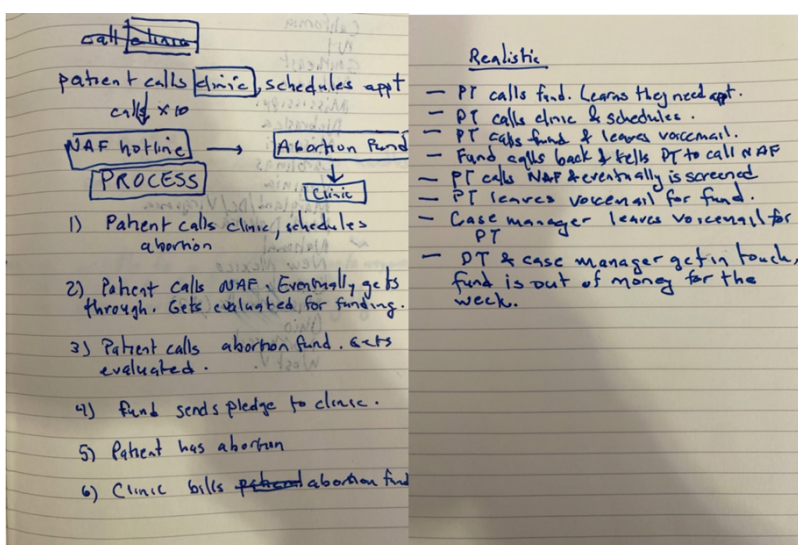 call clinic
patient calls clinic, schedules appt
calls x10
NAF hotline → Abortion Fund
PROCESS
Clinic
1) Patient calls clinic, schedules
abortion
2) Patient calls NAF. Eventually gets
through. Gets evaluated for funding.
3) Patient calls abortion fund. Gets
evaluated.
4) Fund sends pledge to clinic.
5) Patient has abortion
6) Clinic bills abortion fund
Realistic
— PT calls fund. Learns they need appt.
— PT calls clinic & schedules.
— PT calls fund & leaves voicemail.
— Fund calls back & tells PT to call NAF
— PT calls NAF & eventually is screened
— PT leaves voicemail for fund.
— Case manager leaves voicemail for
PT
— PT & case manager get in touch,
fund is out of money for the
week.